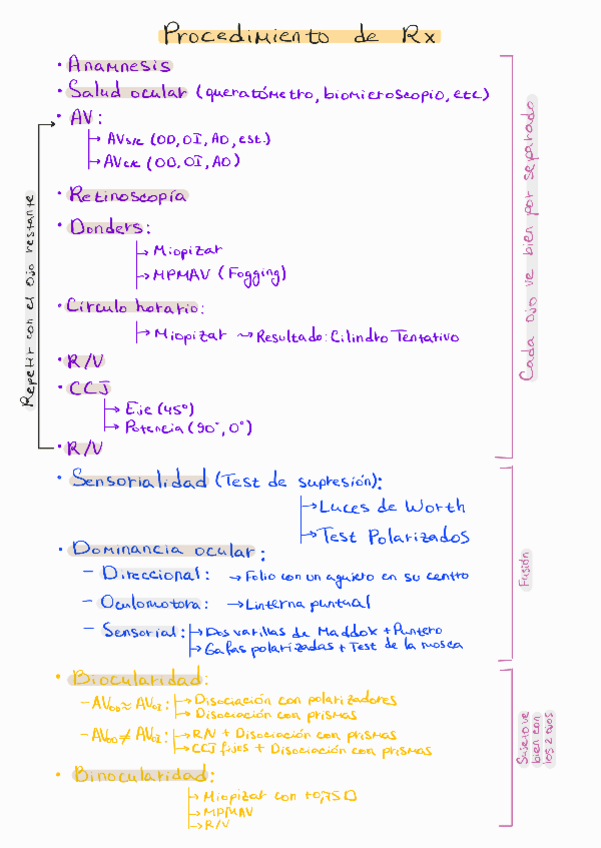 Procedimiento de Rx
• Anamnesis
• Salud ocular (queratómetro, biomicroscopio, etc)
• AV:
→ AVs/c (OD, OI, AO, est.)
→ AVc/c (OD, OI, AO)
• Retinoscopía
• Donders:
→ Miopizar
→ MPMAV (Fogging)
• Círculo horario:
→ Miopizar ⤳ Resultado: Cilindro Tentativo
• R/V
• CCJ
→ Eje (45º)
→ Potencia (90º, 0º)
• R/V
Repetir con el ojo restante
Cada ojo ve bien por separado
• Sensorialidad (Test de supresión):
→ Luces de Worth
→ Test Polarizados
• Dominancia ocular:
– Direccional: → Folio con un agujero en su centro
– Oculomotora: → Linterna puntual
– Sensorial: → Dos varillas de Maddox + Puntero
→ Gafas polarizadas + Test de la mosca
Fusión
• Biocularidad:
– AVOD ≈ AVOI: → Disociación con polarizadores
→ Disociación con prismas
– AVOD ≠ AVOI: → R/V + Disociación con prismas
→ CCJ fijos + Disociación con prismas
• Binocularidad:
→ Miopizar con +0,75 D
→ MPMAV
→ R/V
Sujeto ve
bien con
los 2 ojos